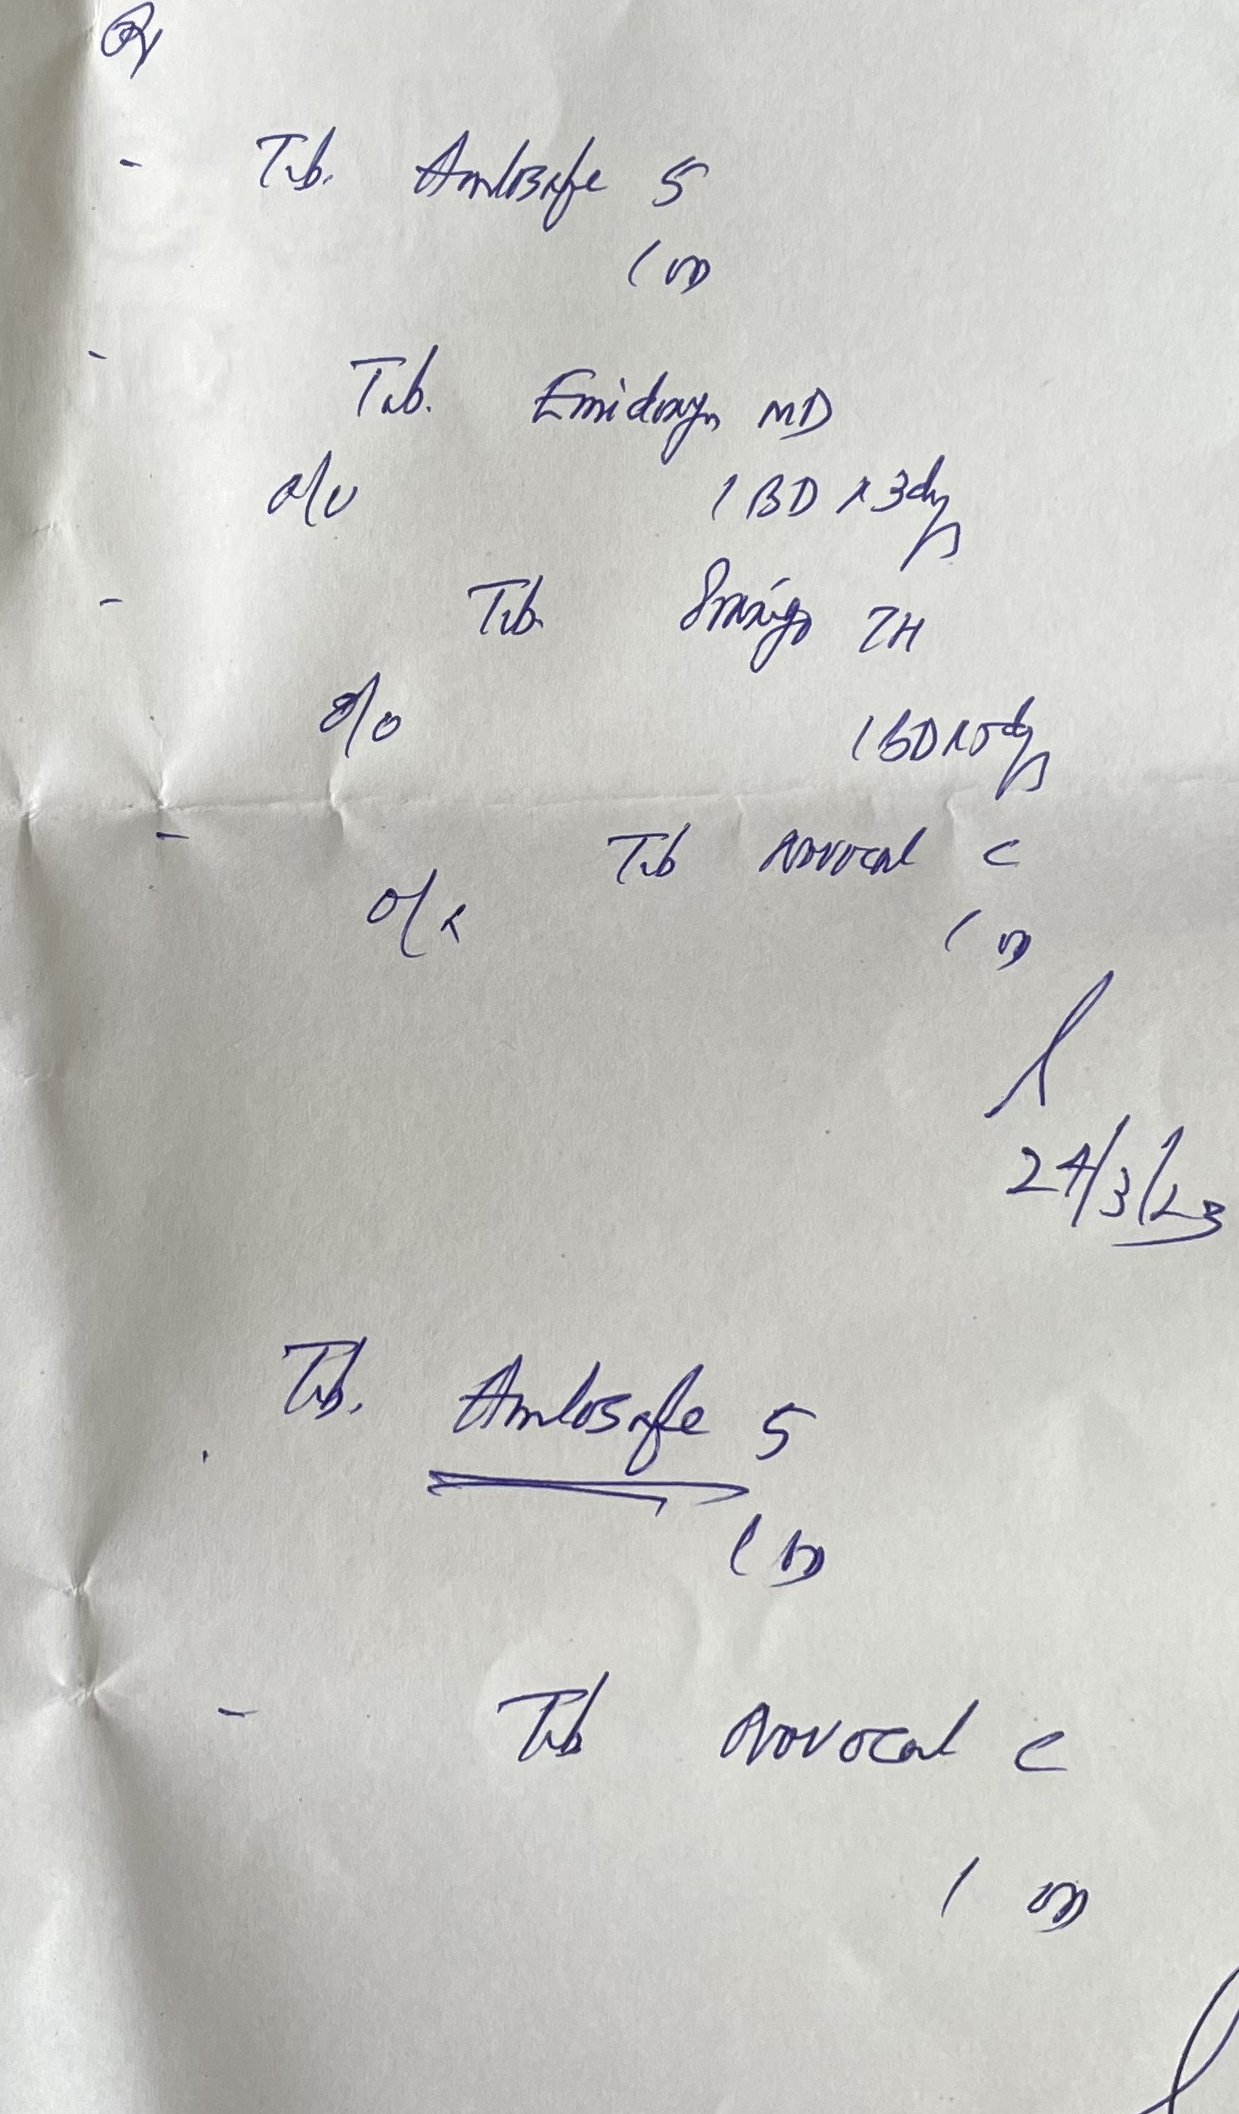 Rx
- Tab. Amlosafe 5
1 OD
- Tab. Emidoxyn MD
1 BD x 3 dys
- Tab. 7H
1 BD x 5 dys
- Tab Novocal C
1 OD
24/3/23
Tab. Amlosafe 5
1 OD
- Tab Novocal C
1 OD